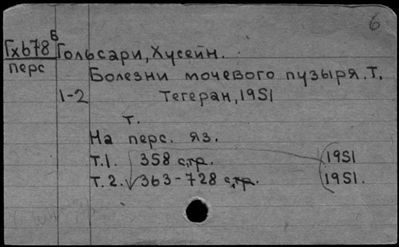 6
Гхb78 Б Гольсари, Хусейн.
перс
Болезни мочевого пузыря. Т.
1-2 Тегеран, 1951
т.
На перс. яз.
т.1. 358 стр. 1951
т.2. 363-728 стр. 1951.